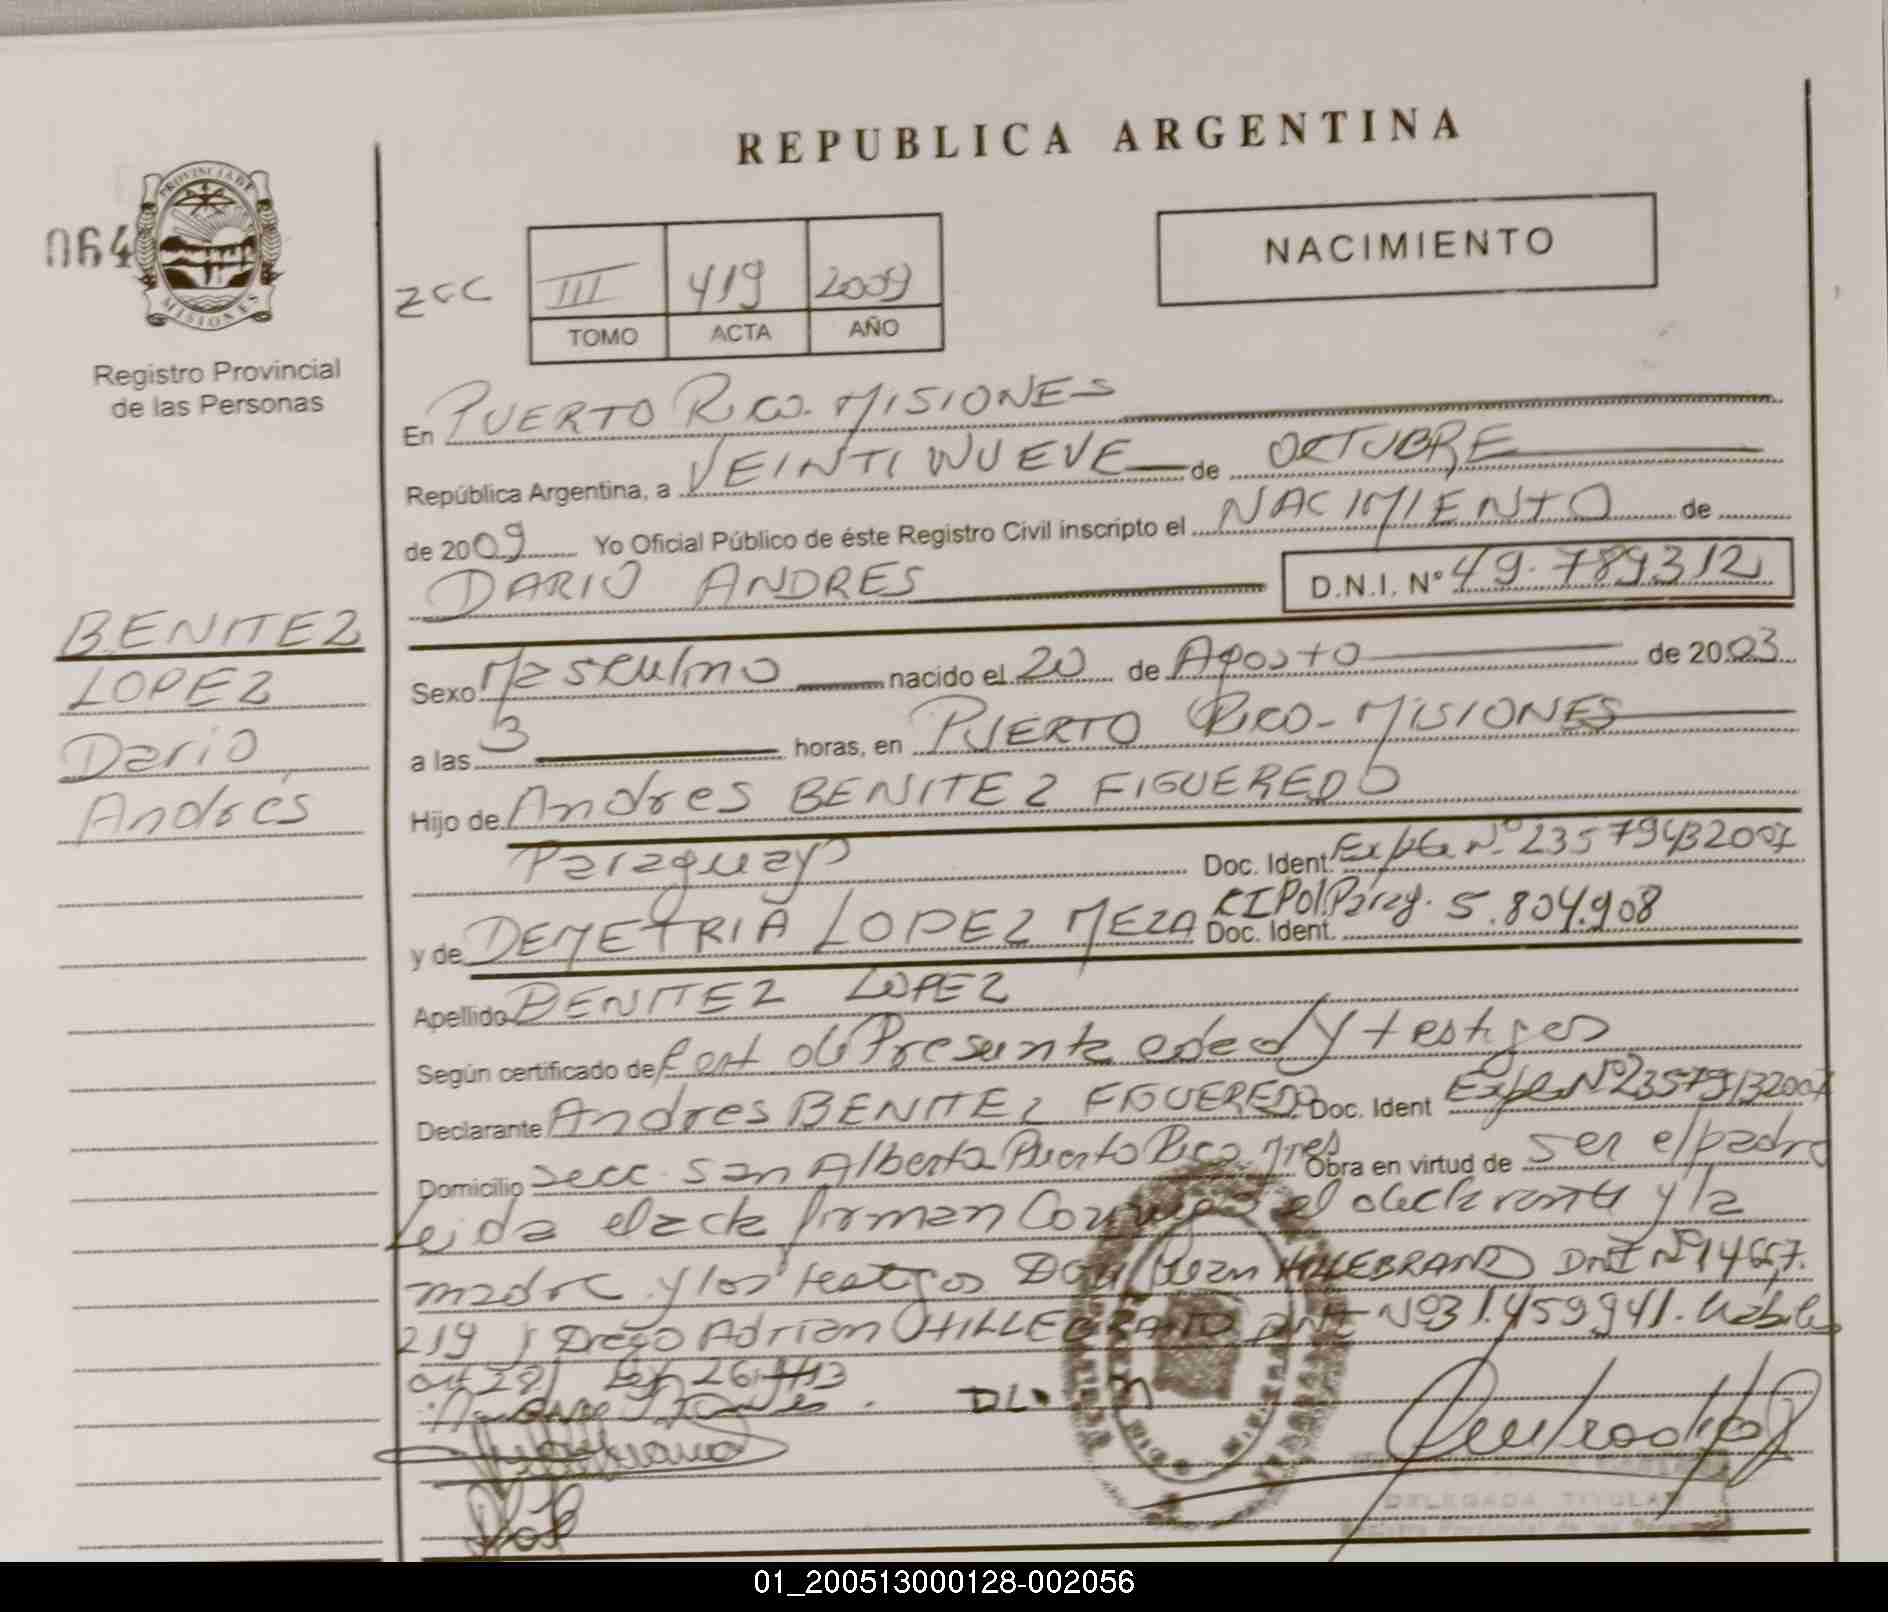 REPUBLICA ARGENTINA
064
PROVINCIA DE
MISIONES
Registro Provincial
de las Personas
III 419 2009
TOMO ACTA AÑO
NACIMIENTO
En PUERTO RICO. MISIONES
República Argentina, a VEINTINUEVE de OCTUBRE
de 2009 Yo Oficial Público de éste Registro Civil inscripto el NACIMIENTO de
DARIO ANDRES D.N.I. Nº 49.789312
BENITEZ
LOPEZ
Dario
Andrés
Sexo Masculino nacido el 20 de Agosto de 2003
a las 3 horas, en PUERTO RICO - MISIONES
Hijo de Andres BENITEZ FIGUEREDO
Paraguayo Doc. Ident. Expte Nº 23579432007
y de DEMETRIA LOPEZ MEZA Doc. Ident. CI Pol. Parag. 5.804.908
Apellido BENITEZ LOPEZ
Según certificado de Cert de Presunta edad y testigos
Declarante Andres BENITEZ FIGUEREDO Doc. Ident Expte Nº
Domicilio Secc. San Alberto Puerto Rico Mnes Obra en virtud de ser el padre
Leida el acta firman Conmigo el declarante y la
madre y los testigos Juan HILLEBRAND DNI Nº 14667.
219 y Diego Adrian HILLEBRAND DNI Nº 31.459941.
art 28 Ley 26.413
DELEGADA TITULAR
01_200513000128-002056